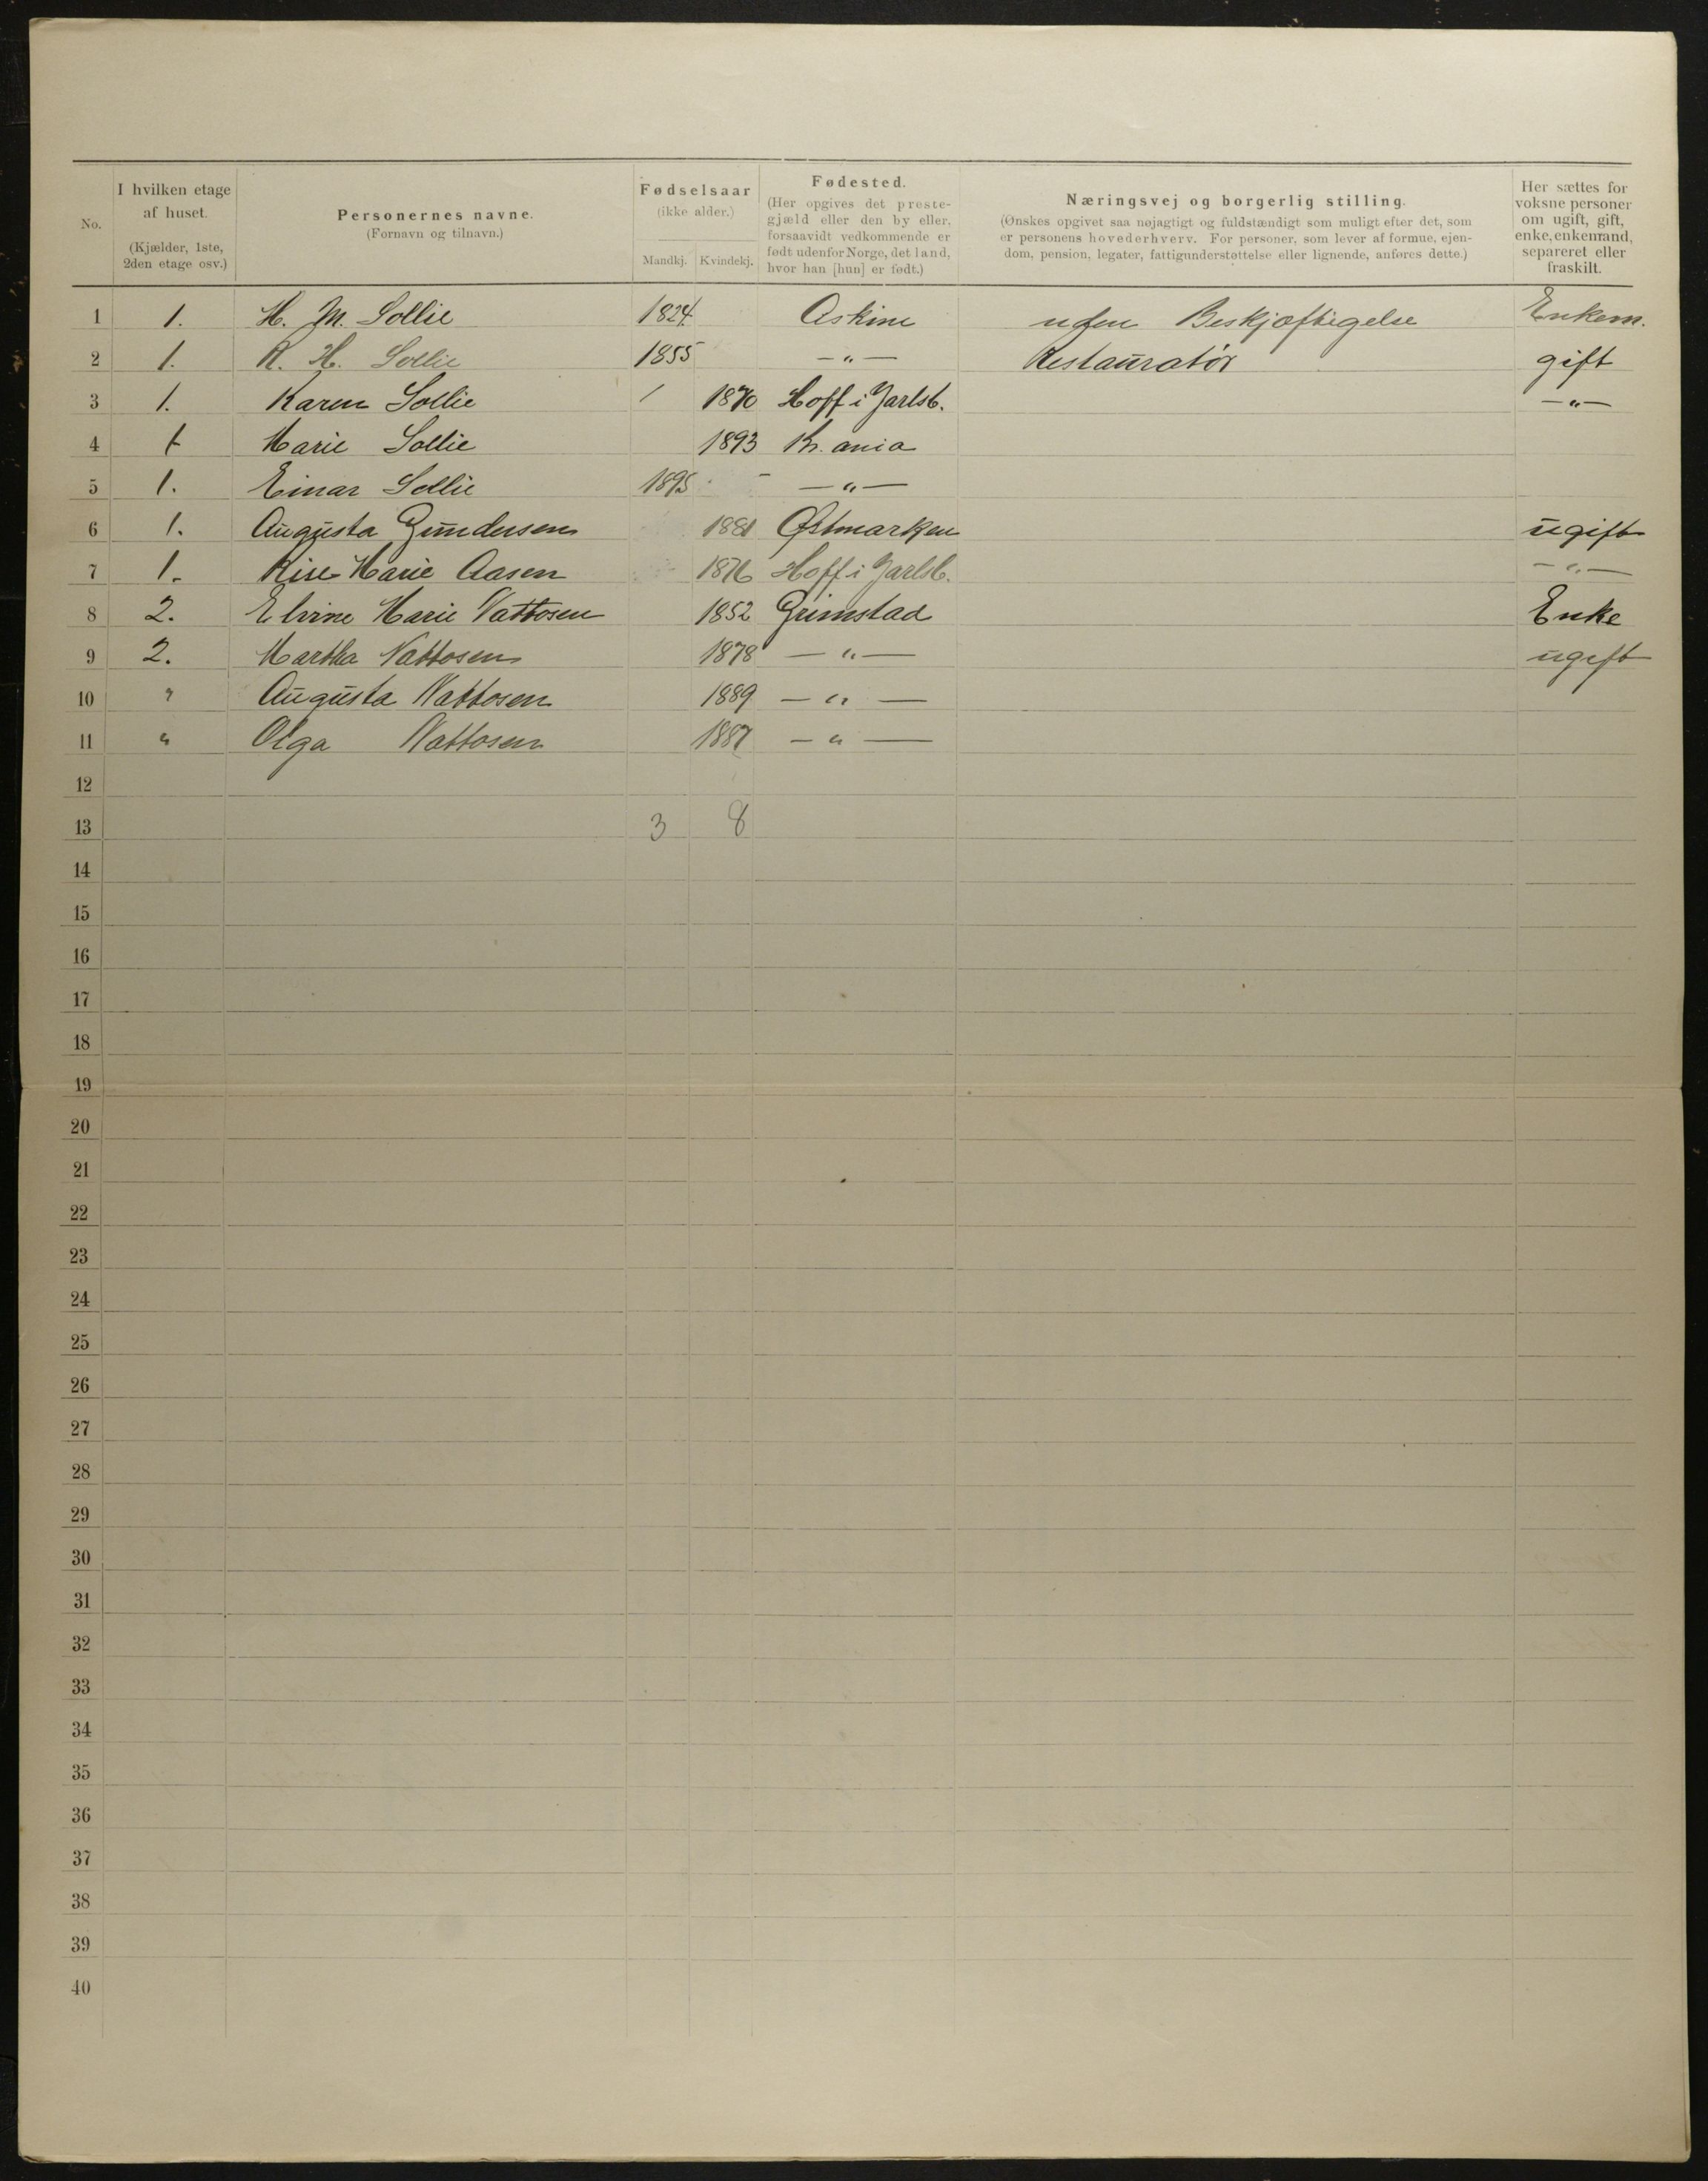 No. | I hvilken etage af huset. (Kjælder, 1ste, 2den etage osv.) | Personernes navne. (Fornavn og tilnavn.) | Fødselsaar (ikke alder.) Mandkj. | Kvindekj. | Fødested. (Her opgives det prestegjæld eller den by eller, forsaavidt vedkommende er født udenfor Norge, det land, hvor han [hun] er født.) | Næringsvej og borgerlig stilling. (Ønskes opgivet saa nøjagtigt og fuldstændigt som muligt efter det, som er personens hovederhverv. For personer, som lever af formue, ejendom, pension, legater, fattigunderstøttelse eller lignende, anføres dette.) | Her sættes for voksne personer om ugift, gift, enke, enkemand, separeret eller fraskilt.
1 1. H. M. Sollie 1824. Askim uden Beskjæftigelse Enkem.
2 1. R. H. Sollie 1855 — " — Restauratør gift
3 1. Karen Sollie 1870 Hoff i Jarlsb. — " —
4 1 Marie Sollie 1893 Kr. ania
5 1. Einar Sollie 1895 — " —
6 1. Augusta Gundersen 1881 Østmarken ugift
7 1. Marie Aasen 1876 Hoff i Jarlsb. — " —
8 2. Elvine Marie Nattosen 1852 Grimstad Enke
9 2. Martha Nattosen 1878 — " — ugift
10 " Augusta Nattosen 1889 — " —
11 " Olga Nattosen 1887 — " —
12
13 3 8
14
15
16
17
18
19
20
21
22
23
24
25
26
27
28
29
30
31
32
33
34
35
36
37
38
39
40